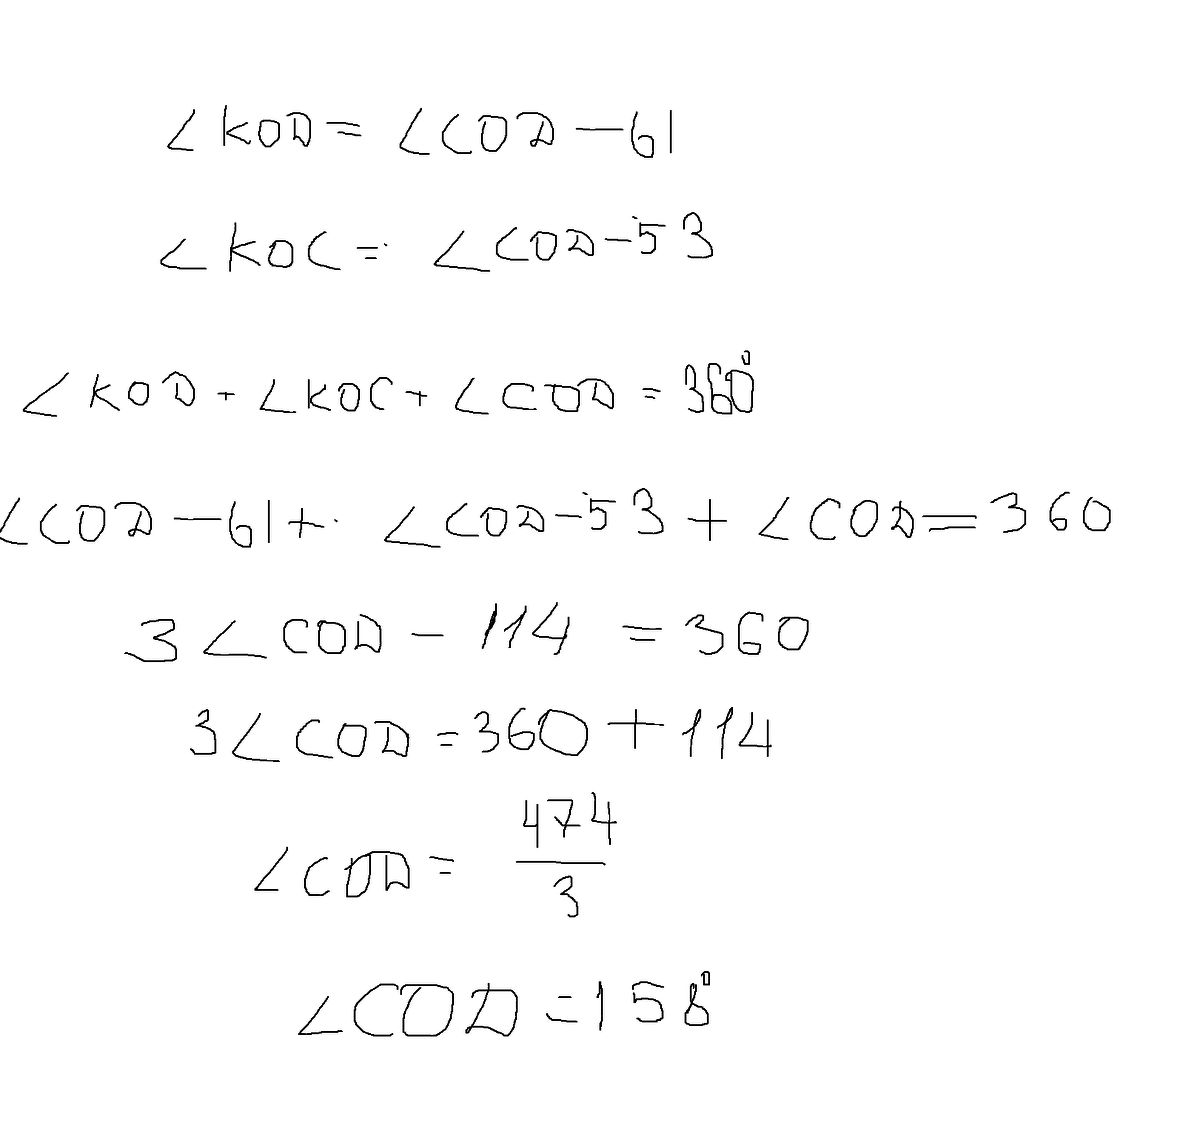 ∠KOD = ∠COD - 61
∠KOC = ∠COD - 53
∠KOD + ∠KOC + ∠COD = 360°
∠COD - 61 + ∠COD - 53 + ∠COD = 360
3∠COD - 114 = 360
3∠COD = 360 + 114
∠COD = 474/3
∠COD = 158°